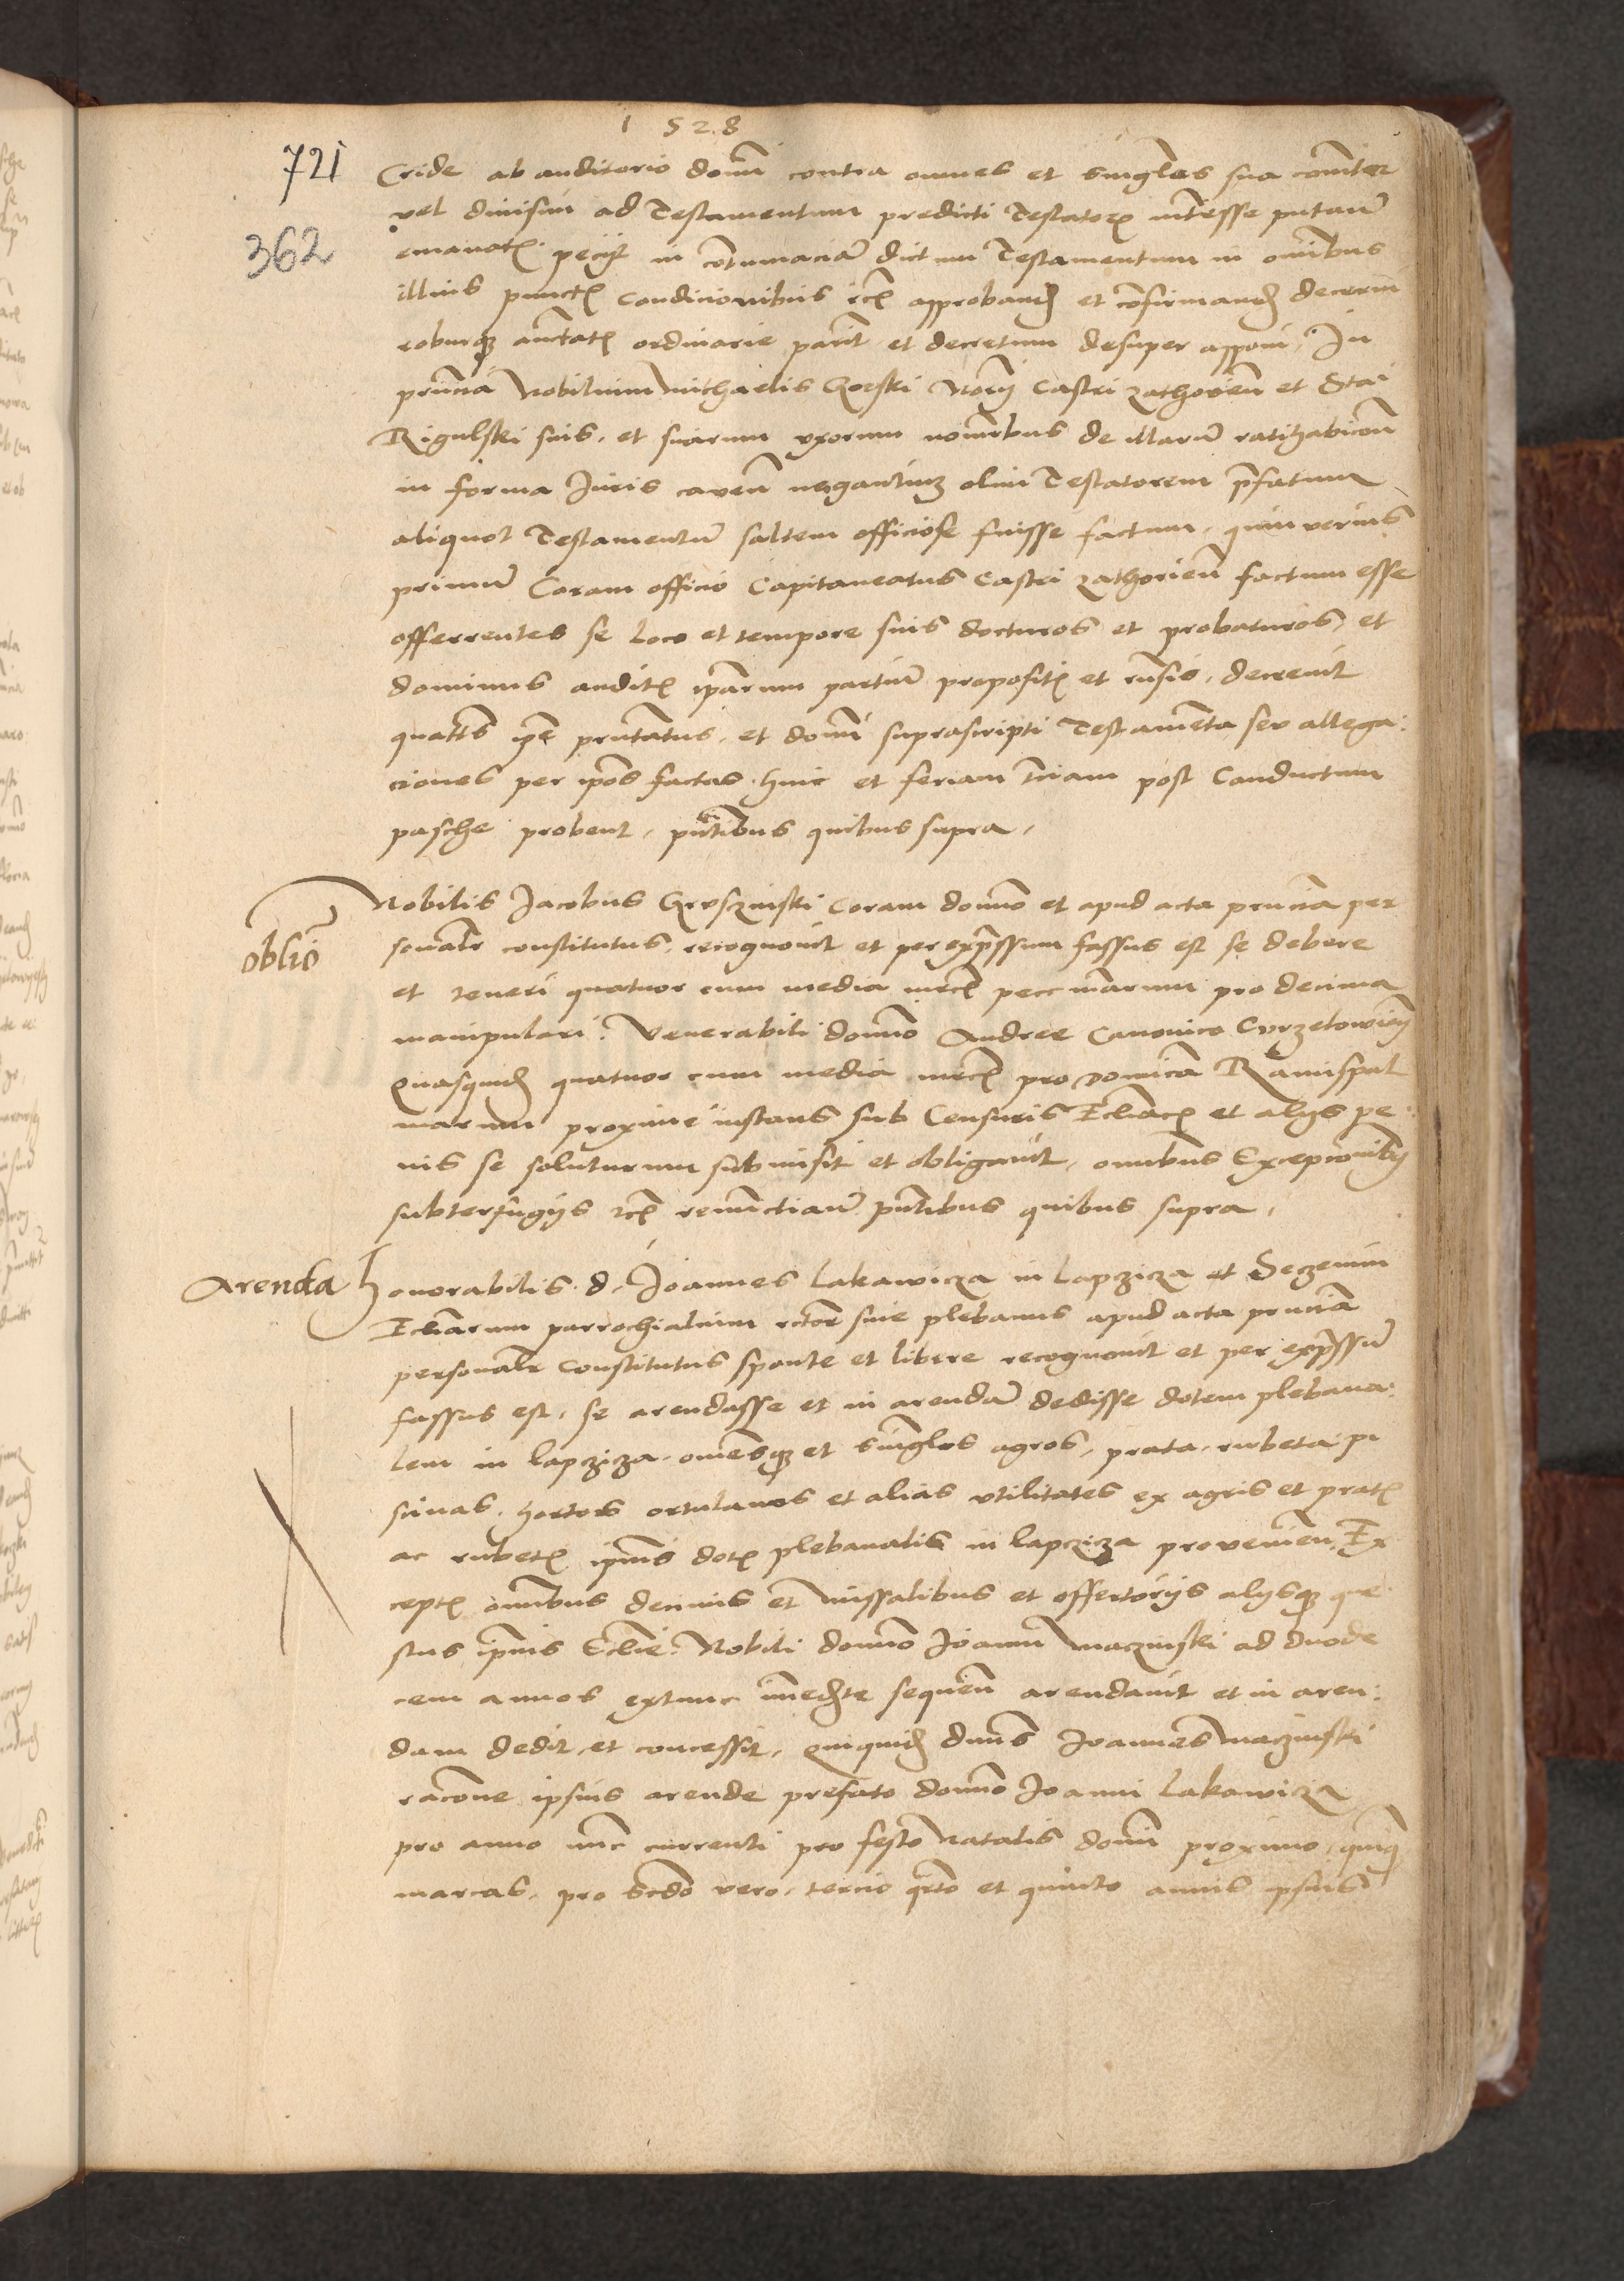 1528
721
Cride ab auditorio domi contra omnes et singulos sua comiter
vel divisim ad Testamentum predicti Testatoris interesse putan
362
emanatis peciit in contumacia dictum Testamentum in omibus
illius punctis Condicionibus etc approband et confirmand decerni
roburque auctatis ordinarie parit et decretum desuper apponi, In
pruncia Nobilium Michaelis Gorski Notarij Castri Zathorien et Stai
Rigulski suis, et suarum uxorum nominibus de illarum ratihabicon
in forma Juris caven negantium olim Testatorem prefatum
aliquot Testamentum saltem officiose fuisse factum, quin verius
primum Coram officio Capitaneatus Castri Zathorien factum esse
offerrentes se loco et tempore suis docturos et probaturos, et
dominus auditis iparum partium propositis et rnsis, decrevit
quattus ipe pruntatus, et domi suprascripti Testamenta seu allega:
ciones per ipos factas hinc et feriam tciam post Conductum
pasche probent, pntibus quibus supra,
Nobilis Jacobus Gruszinski Coram domino et apud acta pruncia per
oblio
sonaliter constitutus, recognovit et per expressum fassus est se debere
et teneri quatuor cum media mrcis pecc marum pro decima
manipulari. Venerabili domino Andree Canonico Curzelowien
Quasquid quatuor cum media mrcis pro dominica Ramispal
marum proxime instans sub Censuris Ecliacis et alijs pe:
nis se soluturum submisit et obligavit, omibus Excepcionibus
subterfugijs etc renunctian pntibus quibus supra,
Arenda
Honorabilis d. Joannes Lakawicza in Lapczicza et Seczemin
Ecliarum parrochialium rctor sive plebanus apud acta pruncia
personaliter Constitutus sponte et libere recognovit et per expressum
fassus est, se arendasse et in arendam dedisse dotem plebana:
lem in Lapczicza omnesque et singlos agros, prata, rubeta pi
scinas, hortos ortulanos et alias utilitates ex agris et pratis
ac rubetis ipius dotis plebanalis in Lapczicza provenien. Ex
ceptis omibus decimis et missalibus et offertorijs alijsque que
stus ipius Eclie. Nobili domino Joanni Maczinski ad duode
cem annos extunc immediate sequen arendavit et in aren:
dam dedit et concessit, Quiquid dnus Joannes Maczinski
racone ipsius arende prefato domino Joanni Lakawicza
pro anno nunc currenti pro festo Natalis domi proximo, quinque
marcas, pro scdo vero, tercio qrto et quinto annis ipsius